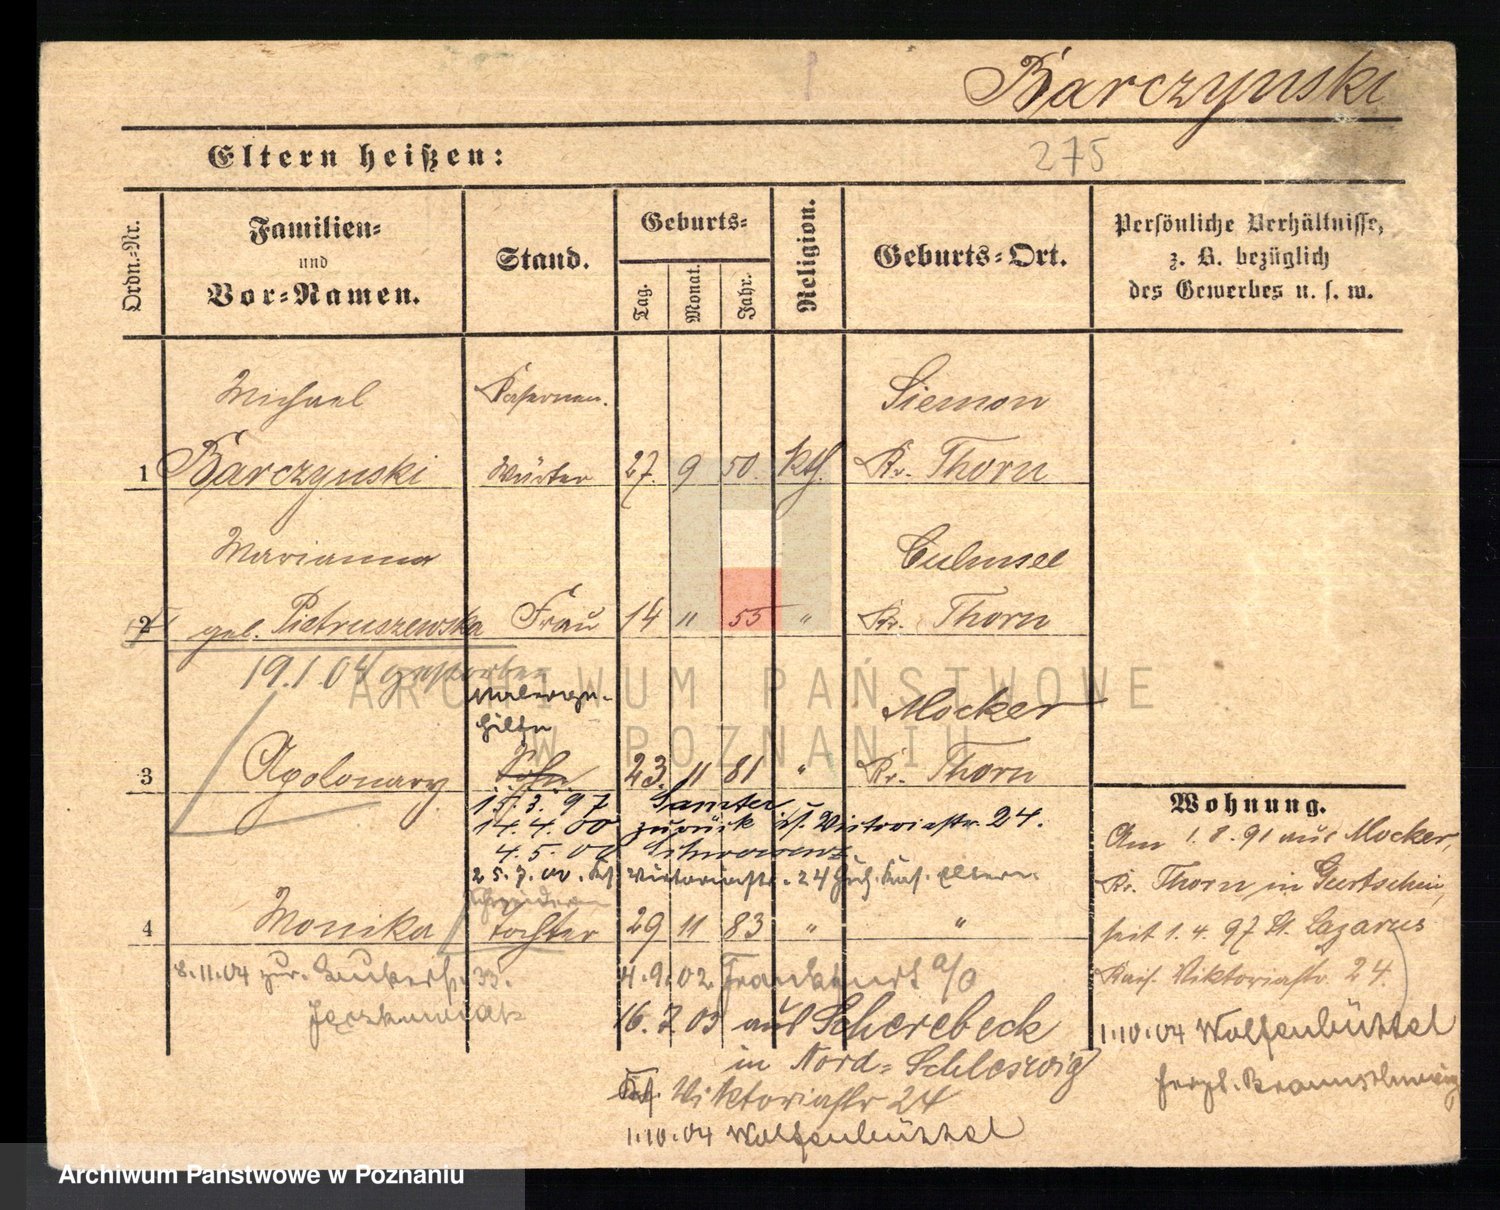 Barczynski
275
Eltern heißen:
Ordn.-Nr.
Familien-
und
Vor-Namen.
Stand.
Geburts-
Tag.
Monat.
Jahr.
Religion.
Geburts-Ort.
Persönliche Verhältnisse,
z. B. bezüglich
des Gewerbes u. s. w.
Michael Kasernen. Siemon
1 Barczynski Wärter 27. 9 50. kth. Kr. Thorn
Marianna Culmsee
2 geb. Pietruszewska Frau 14 " 55 " Kr. Thorn
19.1.04 gestorben
Mocker
3 Apolonary Sohn 23. 11 81 " Kr. Thorn
15.3.97 Samter
14.4.00 zurück Victoriastr. 24.
4.5.00
25.7.00. Ks. Victoriastr. 24 Eltern.
4 Monika Tochter 29 11 83 " "
8.11.04 zur. 33.
4.9.02. Frankfurt a/O
16.7.03 aus Scherebeck
in Nord-Schleswig
Viktoriastr 24
1.10.04 Wolfenbüttel
Wohnung.
Am 1.8.91 aus Mocker,
Kr. Thorn, in Gurtschin,
seit 1.4.97 St. Lazarus
Kais. Viktoriastr 24.
1.10.04 Wolfenbüttel
herzl. Braunschweig
ARCHIWUM PAŃSTWOWE
W POZNANIU
Archiwum Państwowe w Poznaniu